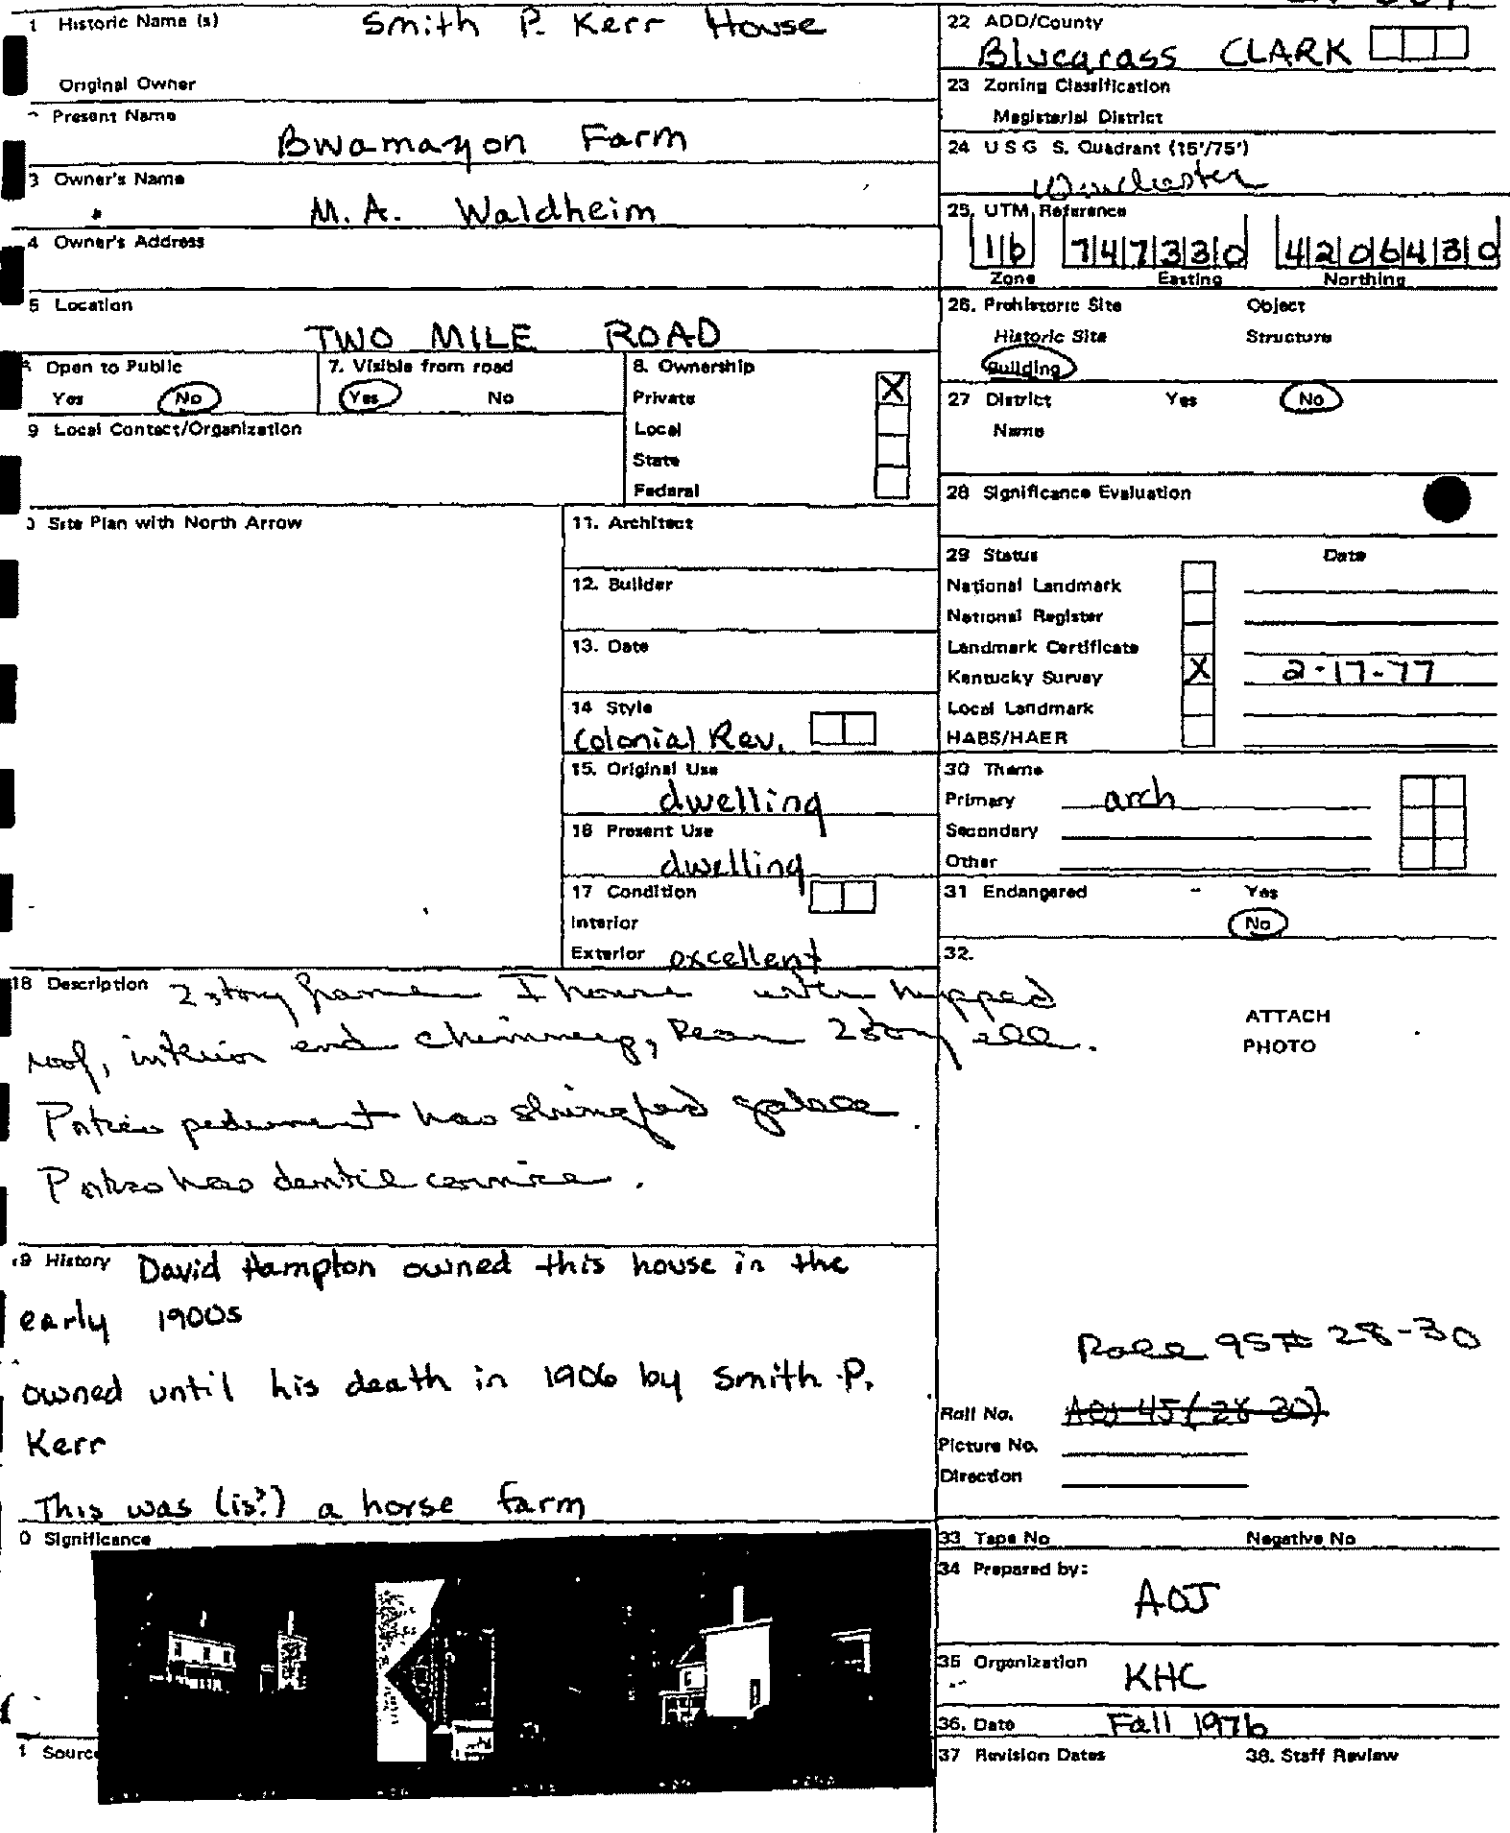 1 Historic Name (s) Smith P. Kerr House
Original Owner
Present Name
Bwamazon Farm
3 Owner's Name
M. A. Waldheim
4 Owner's Address
5 Location
TWO MILE ROAD
Open to Public
Yes No
7. Visible from road
Yes No
8. Ownership
Private X
Local
State
Federal
9 Local Contact/Organization
0 Site Plan with North Arrow
11. Architect
12. Builder
13. Date
14 Style
Colonial Rev.
15. Original Use
dwelling
16 Present Use
dwelling
17 Condition
Interior
Exterior excellent
18 Description 2 story frame I house with hipped
roof, interior end chimneys, Rear 2 story ell.
Portico pediment has shingled gable.
Portico has dentil cornice.
19 History David Hampton owned this house in the
early 1900s
owned until his death in 1906 by Smith P.
Kerr
This was (is?) a horse farm
0 Significance
1 Source
22 ADD/County
Bluegrass CLARK
23 Zoning Classification
Magisterial District
24 U S G S. Quadrant (15'/75')
Winchester
25. UTM Reference
16 747330 4206430
Zone Easting Northing
26. Prehistoric Site Object
Historic Site Structure
Building
27 District Yes No
Name
28 Significance Evaluation
29 Status Date
National Landmark
National Register
Landmark Certificate
Kentucky Survey X 2-17-77
Local Landmark
HABS/HAER
30 Theme
Primary arch
Secondary
Other
31 Endangered Yes
No
32.
ATTACH
PHOTO
Roll 95# 28-30
Roll No. AOJ 45 (28 30)
Picture No.
Direction
33 Tape No Negative No
34 Prepared by:
AOJ
35 Organization KHC
36. Date Fall 1976
37 Revision Dates 38. Staff Review